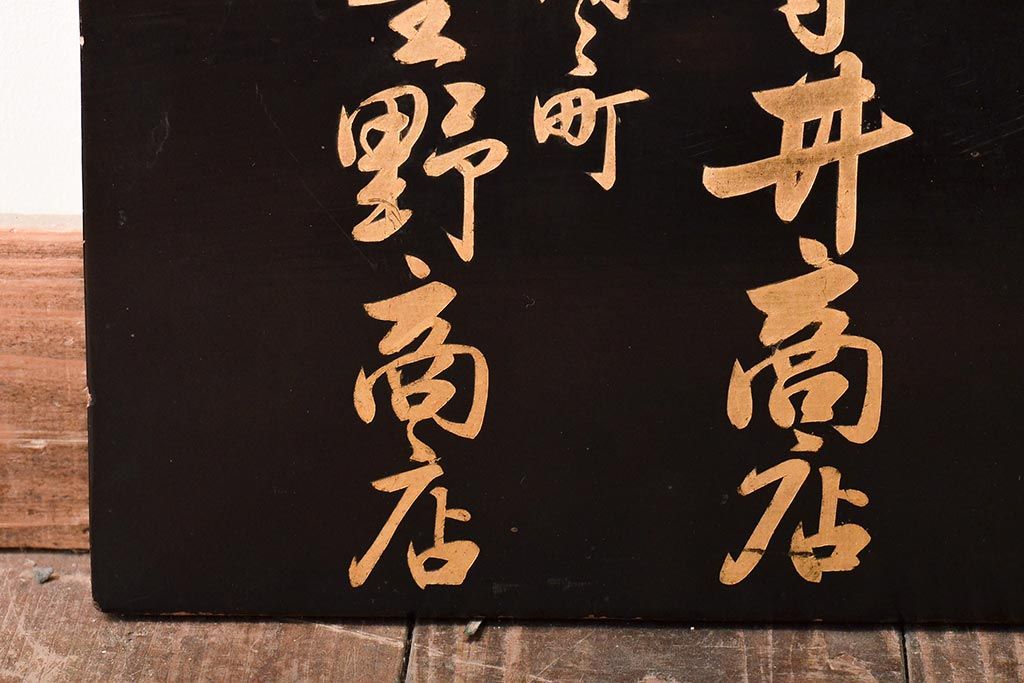 井商店
町
野商店